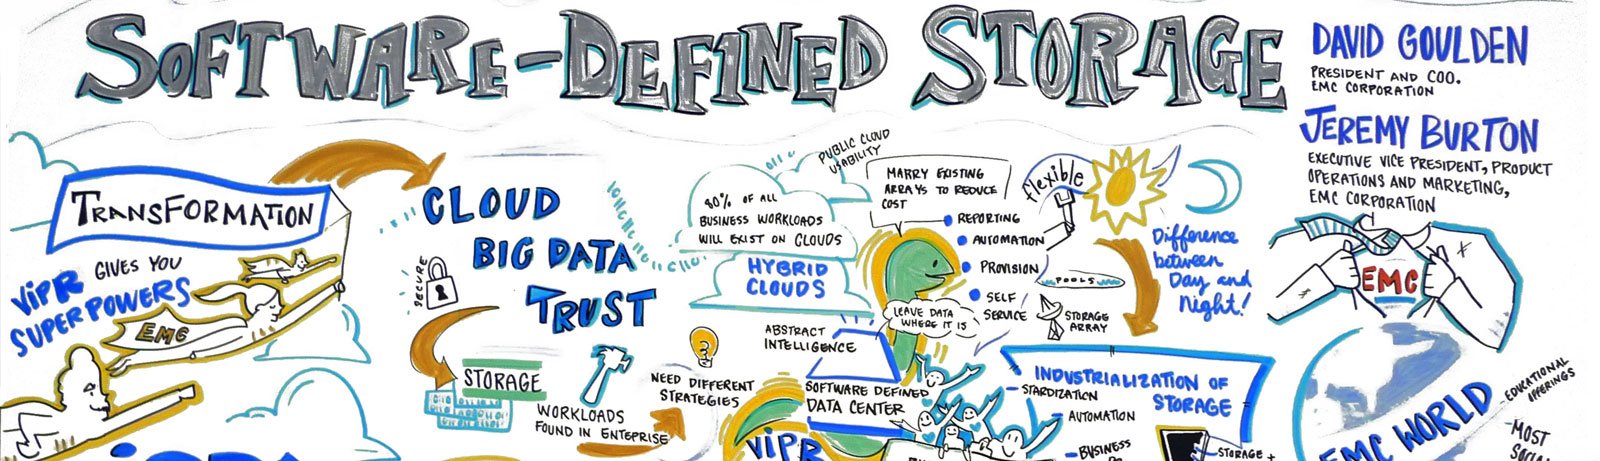 SOFTWARE-DEFINED STORAGE
DAVID GOULDEN
PRESIDENT AND COO.
EMC CORPORATION
JEREMY BURTON
EXECUTIVE VICE PRESIDENT, PRODUCT
OPERATIONS AND MARKETING,
EMC CORPORATION
EMC
TRANSFORMATION
ViPR GIVES YOU
SUPERPOWERS
EMC
CLOUD
BIG DATA
TRUST
SECURE
STORAGE
WORKLOADS
FOUND IN ENTEPRISE
NEED DIFFERENT
STRATEGIES
PUBLIC CLOUD
USABILITY
80% OF ALL
BUSINESS WORKLOADS
WILL EXIST ON CLOUDS
HYBRID
CLOUDS
MARRY EXISTING
ARRAYS TO REDUCE
COST
REPORTING
AUTOMATION
PROVISION
SELF
SERVICE
LEAVE DATA
WHERE IT IS
ABSTRACT
INTELLIGENCE
SOFTWARE DEFINED
DATA CENTER
ViPR
flexible
POOLS
STORAGE
ARRAY
Difference
between
Day and
Night!
INDUSTRIALIZATION OF
STORAGE
- STARDIZATION
- AUTOMATION
- BUSINESS
- STORAGE +
EMC WORLD
- EDUCATIONAL
OFFERINGS
- MOST